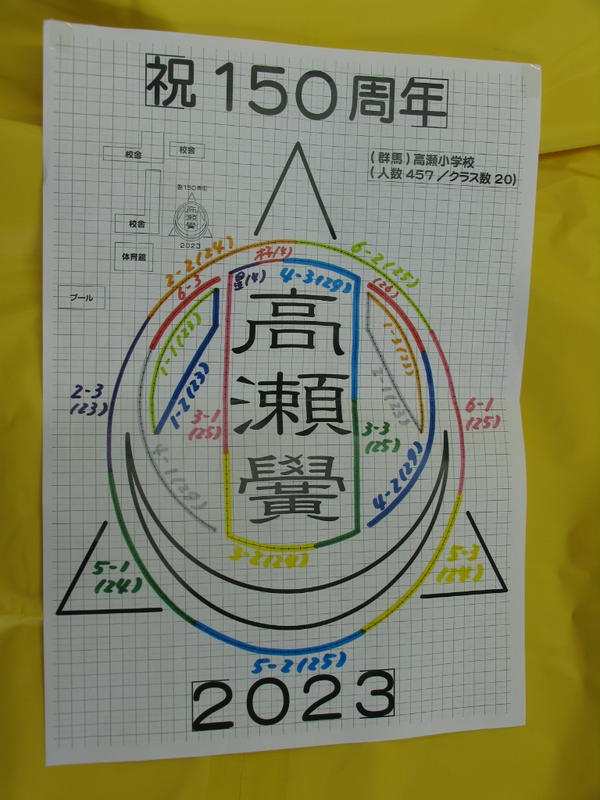 祝150周年
(群馬)高瀬小学校
(人数457／クラス数20)
校舎
校舎
祝150周年
高瀬黌
2023
校舎
体育館
プール
2-2(24)
6-2(25)
6-3
(26)
星(4)
4-3(29)
1-1(23)
1-2(23)
1-3(23)
2-1(23)
2-3
(23)
6-1
(25)
3-1
(25)
3-3
(25)
4-1(29)
4-2(29)
高
瀬
黌
3-2(24)
5-1
(24)
5-3
(24)
5-2(25)
2023